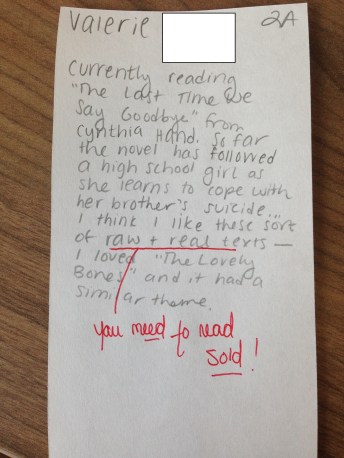 Valerie 2A
Currently reading
"The Last Time We
Say Goodbye" from
Cynthia Hand. So far
the novel has followed
a high school girl as
she learns to cope with
her brother's suicide...
I think I like these sort
of raw + real texts —
I loved "The Lovely
Bones" and it had a
similar theme.
you need to read
Sold!